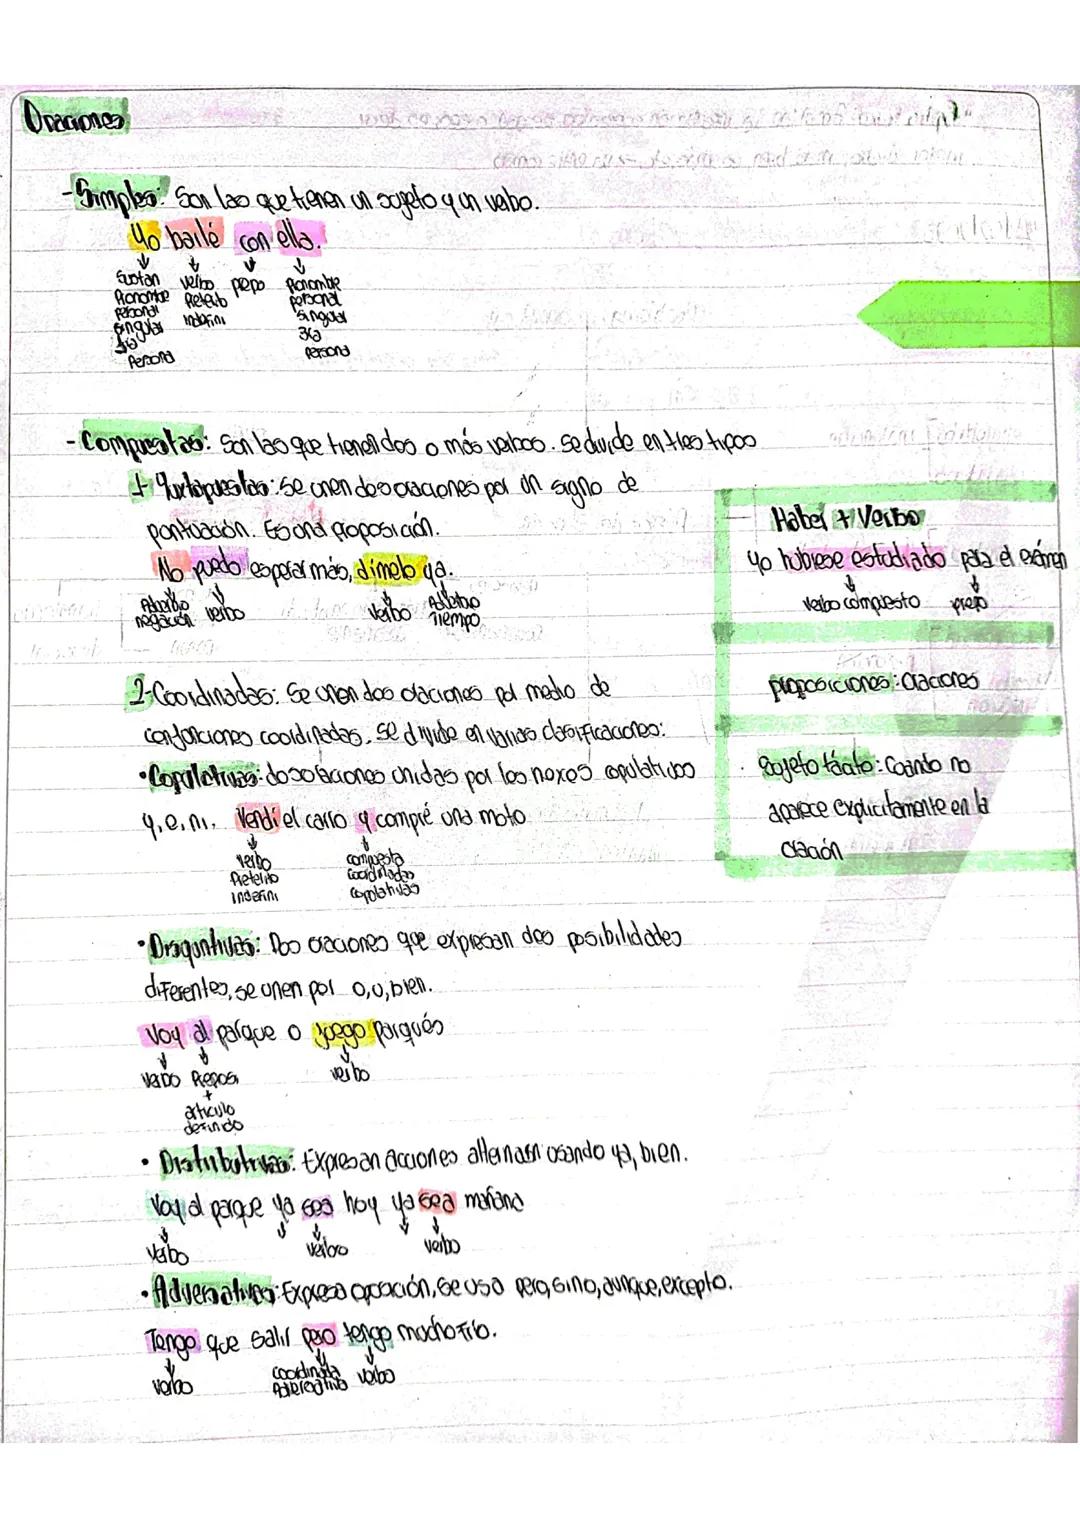 Oraciones
- Simples: Son las que tienen un sujeto y un verbo.
Yo bailé con ella.
Sustan verbo prepo Pronombre
Pronombre Preterito personal
personal indefini singular
singular 3ra
persona
Persona
- Compuestas: Son las que tienen dos o más verbos. Se divide en tres tipos
1 Yuxtapuestas: Se unen dos oraciones por un signo de
puntuación. Es una proposición.
No puedo esperar más, dimelo ya.
Adverbio verbo verbo Adverbio
negación Tiempo
2-Coordinadas: Se unen dos oraciones por medio de
conjunciones coordinadas. Se divide en varias clasificaciones:
• Copulativas: dos oraciones unidas por los nexos copulativos
y, e, ni. Vendí el carro y compré una moto
verbo compuesta
Preterito coordinadas
indefini copulativas
• Disyuntivas: Dos oraciones que expresan dos posibilidades
diferentes, se unen por o, u, bien.
Voy al parque o juego parqués
verbo Preposi verbo
+
articulo
definido
• Distributivas: Expresan acciones alternasn usando ya, bien.
Voy al parque ya sea hoy ya sea mañana
verbo verbo verbo
• Adversativas: Expresa oposición, se usa pero, sino, aunque, excepto.
Tengo que salir pero tengo mucho frio.
verbo coordinada verbo
Haber + Verbo
yo hubiese estudiado para el exámen
verbo compuesto prepo
proposiciones: Oraciones
Sujeto tácito: Cuando no
aparece explicitamente en la
oración